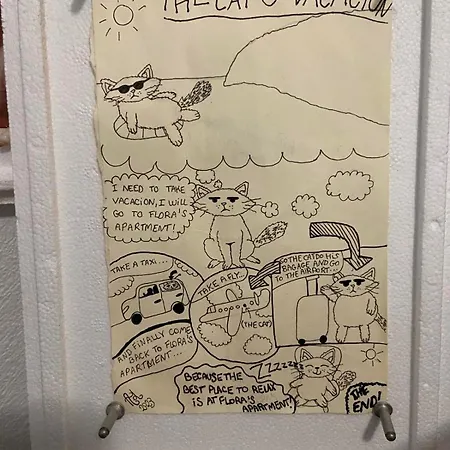 THE CAT'S VACACION
I NEED TO TAKE
VACACION, I WILL
GO TO FLORA'S
APARTMENT!
SO THE CAT DO HIS
BAGAGE AND GO
TO THE AIRPORT...
TAKE A FLY...
(THE CAT)
TAKE A TAXI...
AND FINALLY COME
BACK TO FLORA'S
APARTMENT...
ZZZZZZZ
BECAUSE THE
BEST PLACE TO RELAX
IS AT FLORA'S
APARTMENT!
THE
END!